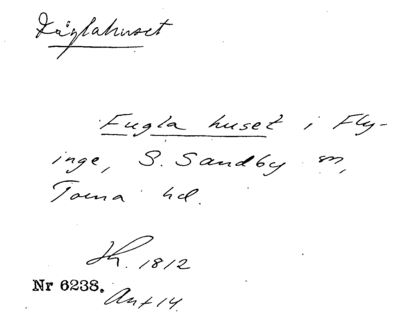 Fåglahuset
Fugla huset i Fly-
inge, S. Sandby sn,
Torna hd.
Jh. 1812
Nr 6238.
Ant 14